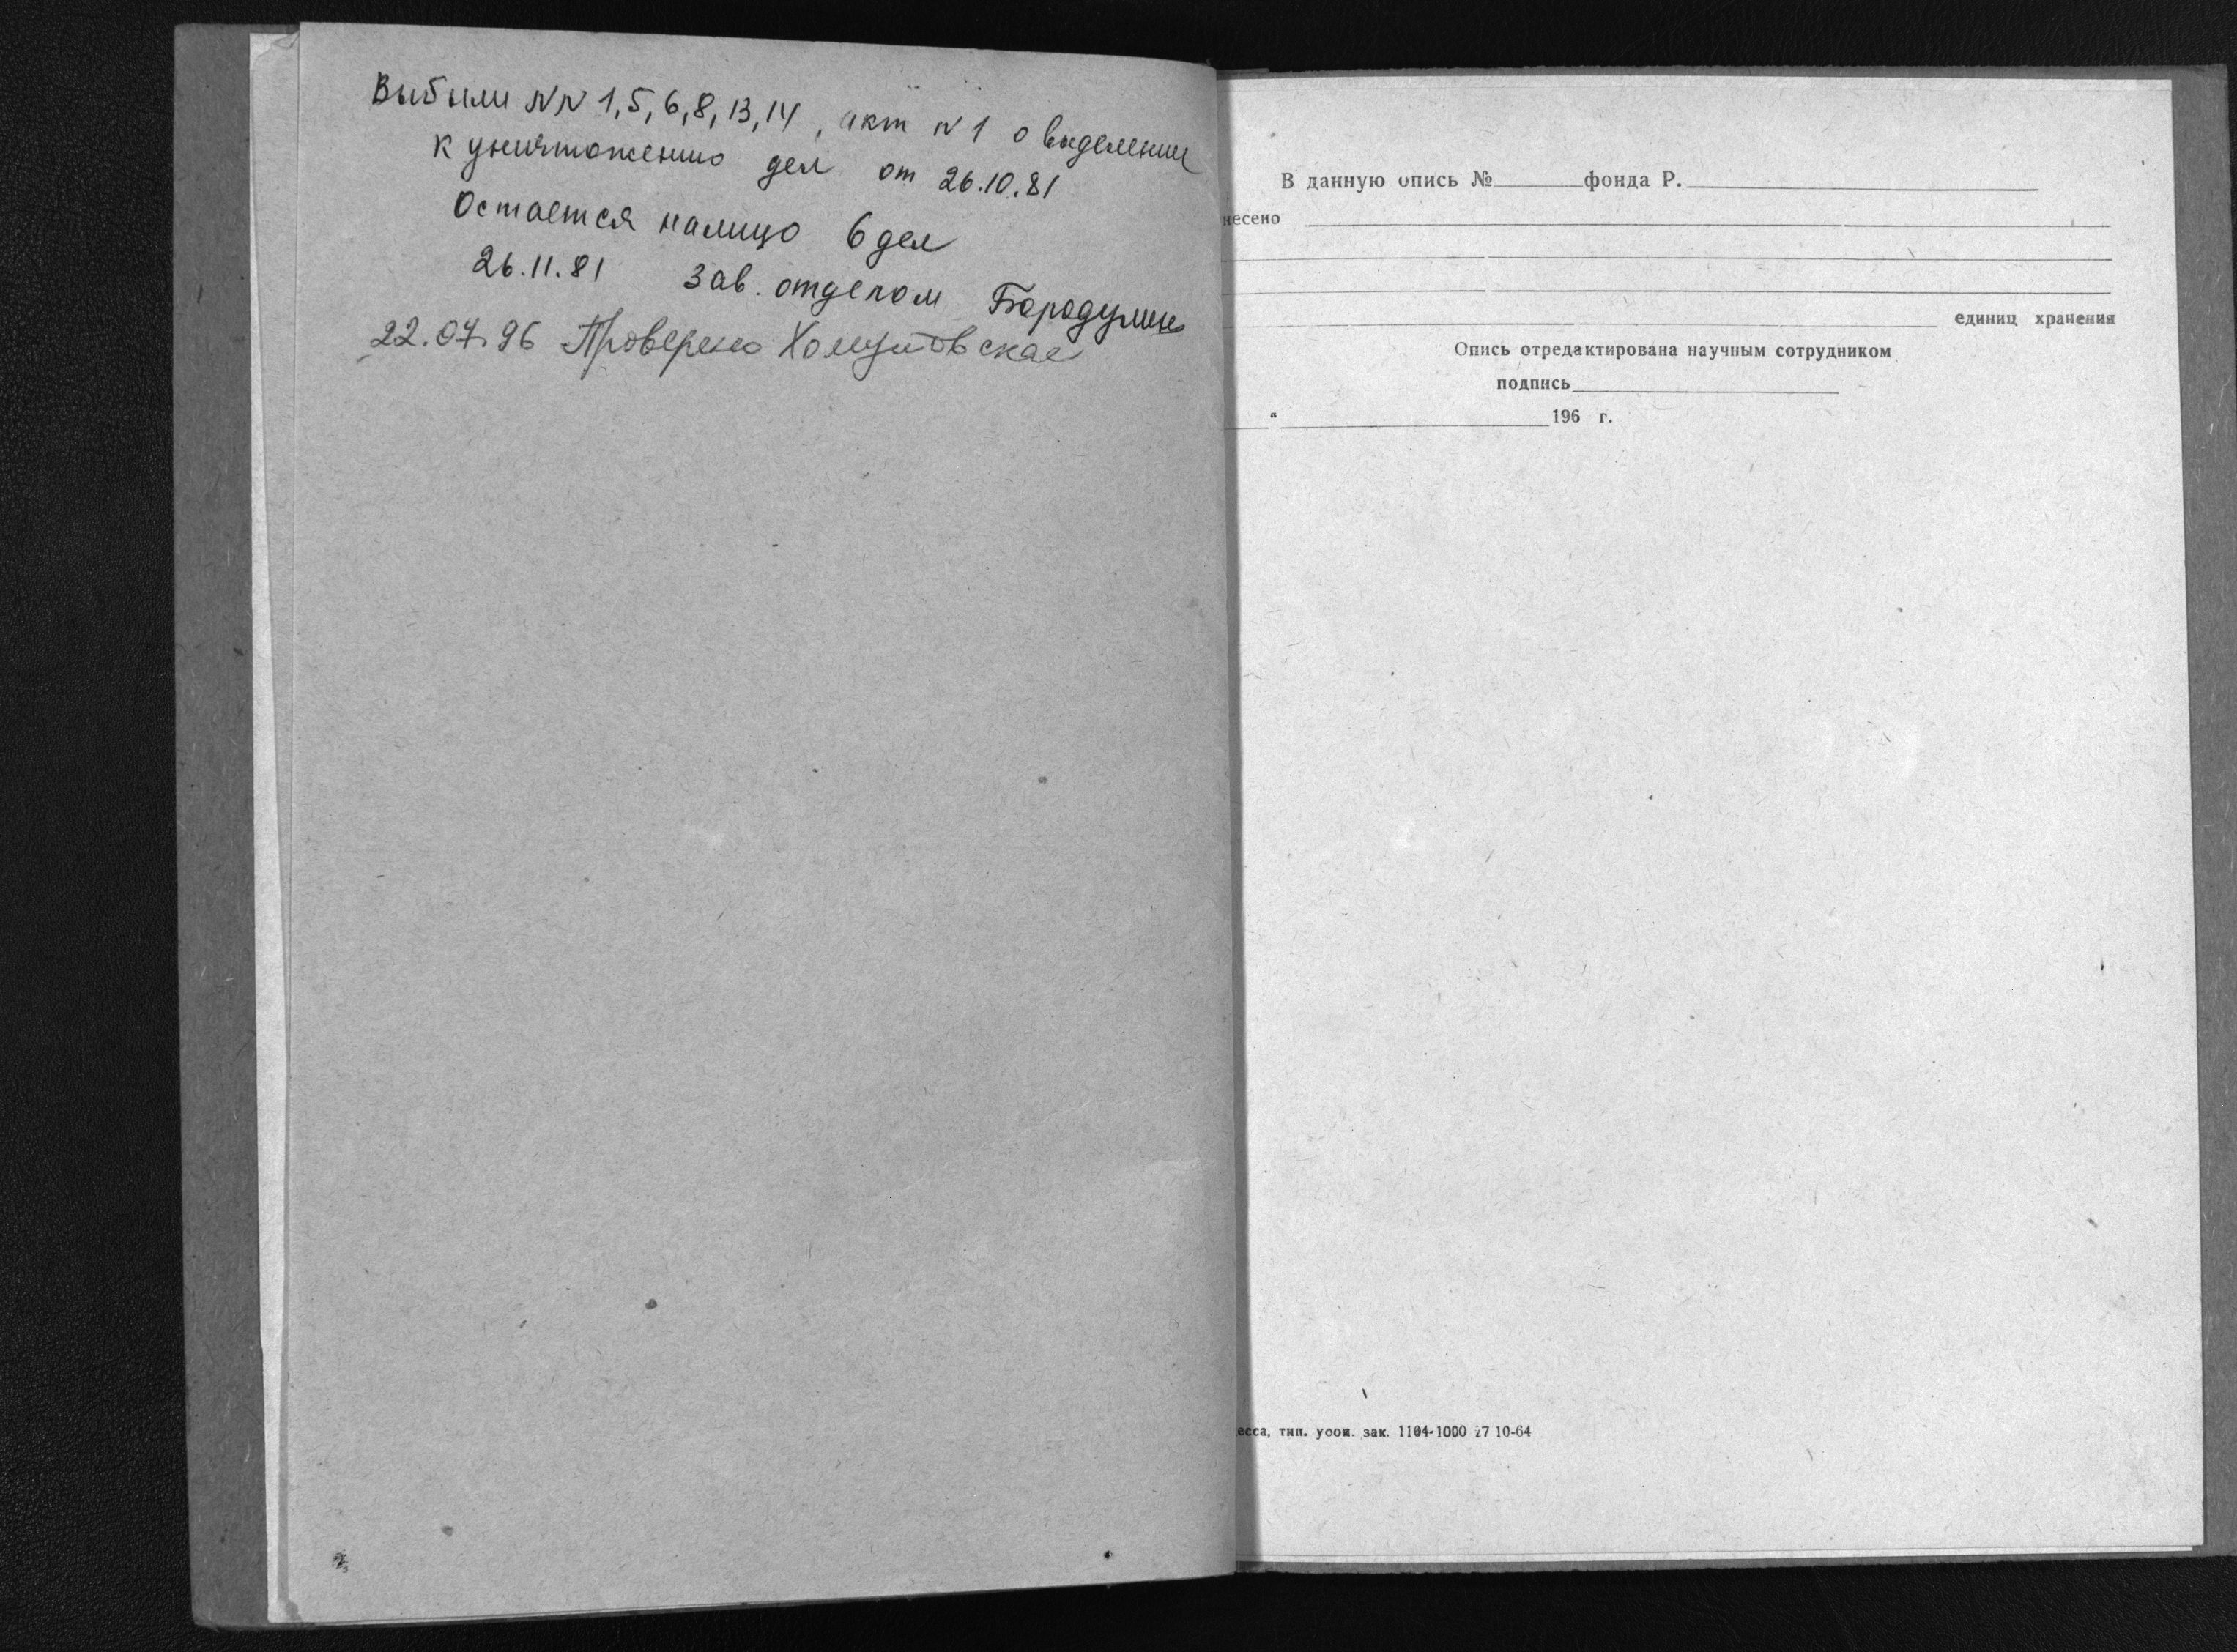 Выбыли NN 1,5,6,8,13,14, акт N1 о выделении
к уничтожению дел от 26.10.81
Остается налицо 6 дел
26.11.81 Зав. отделом Бородулин
22.07.96 Проверено
В данную опись № фонда Р.
несено
единиц хранения
Опись отредактирована научным сотрудником
подпись
" 196 г.
есса, тип. зак. 1104-1000 27 10-64